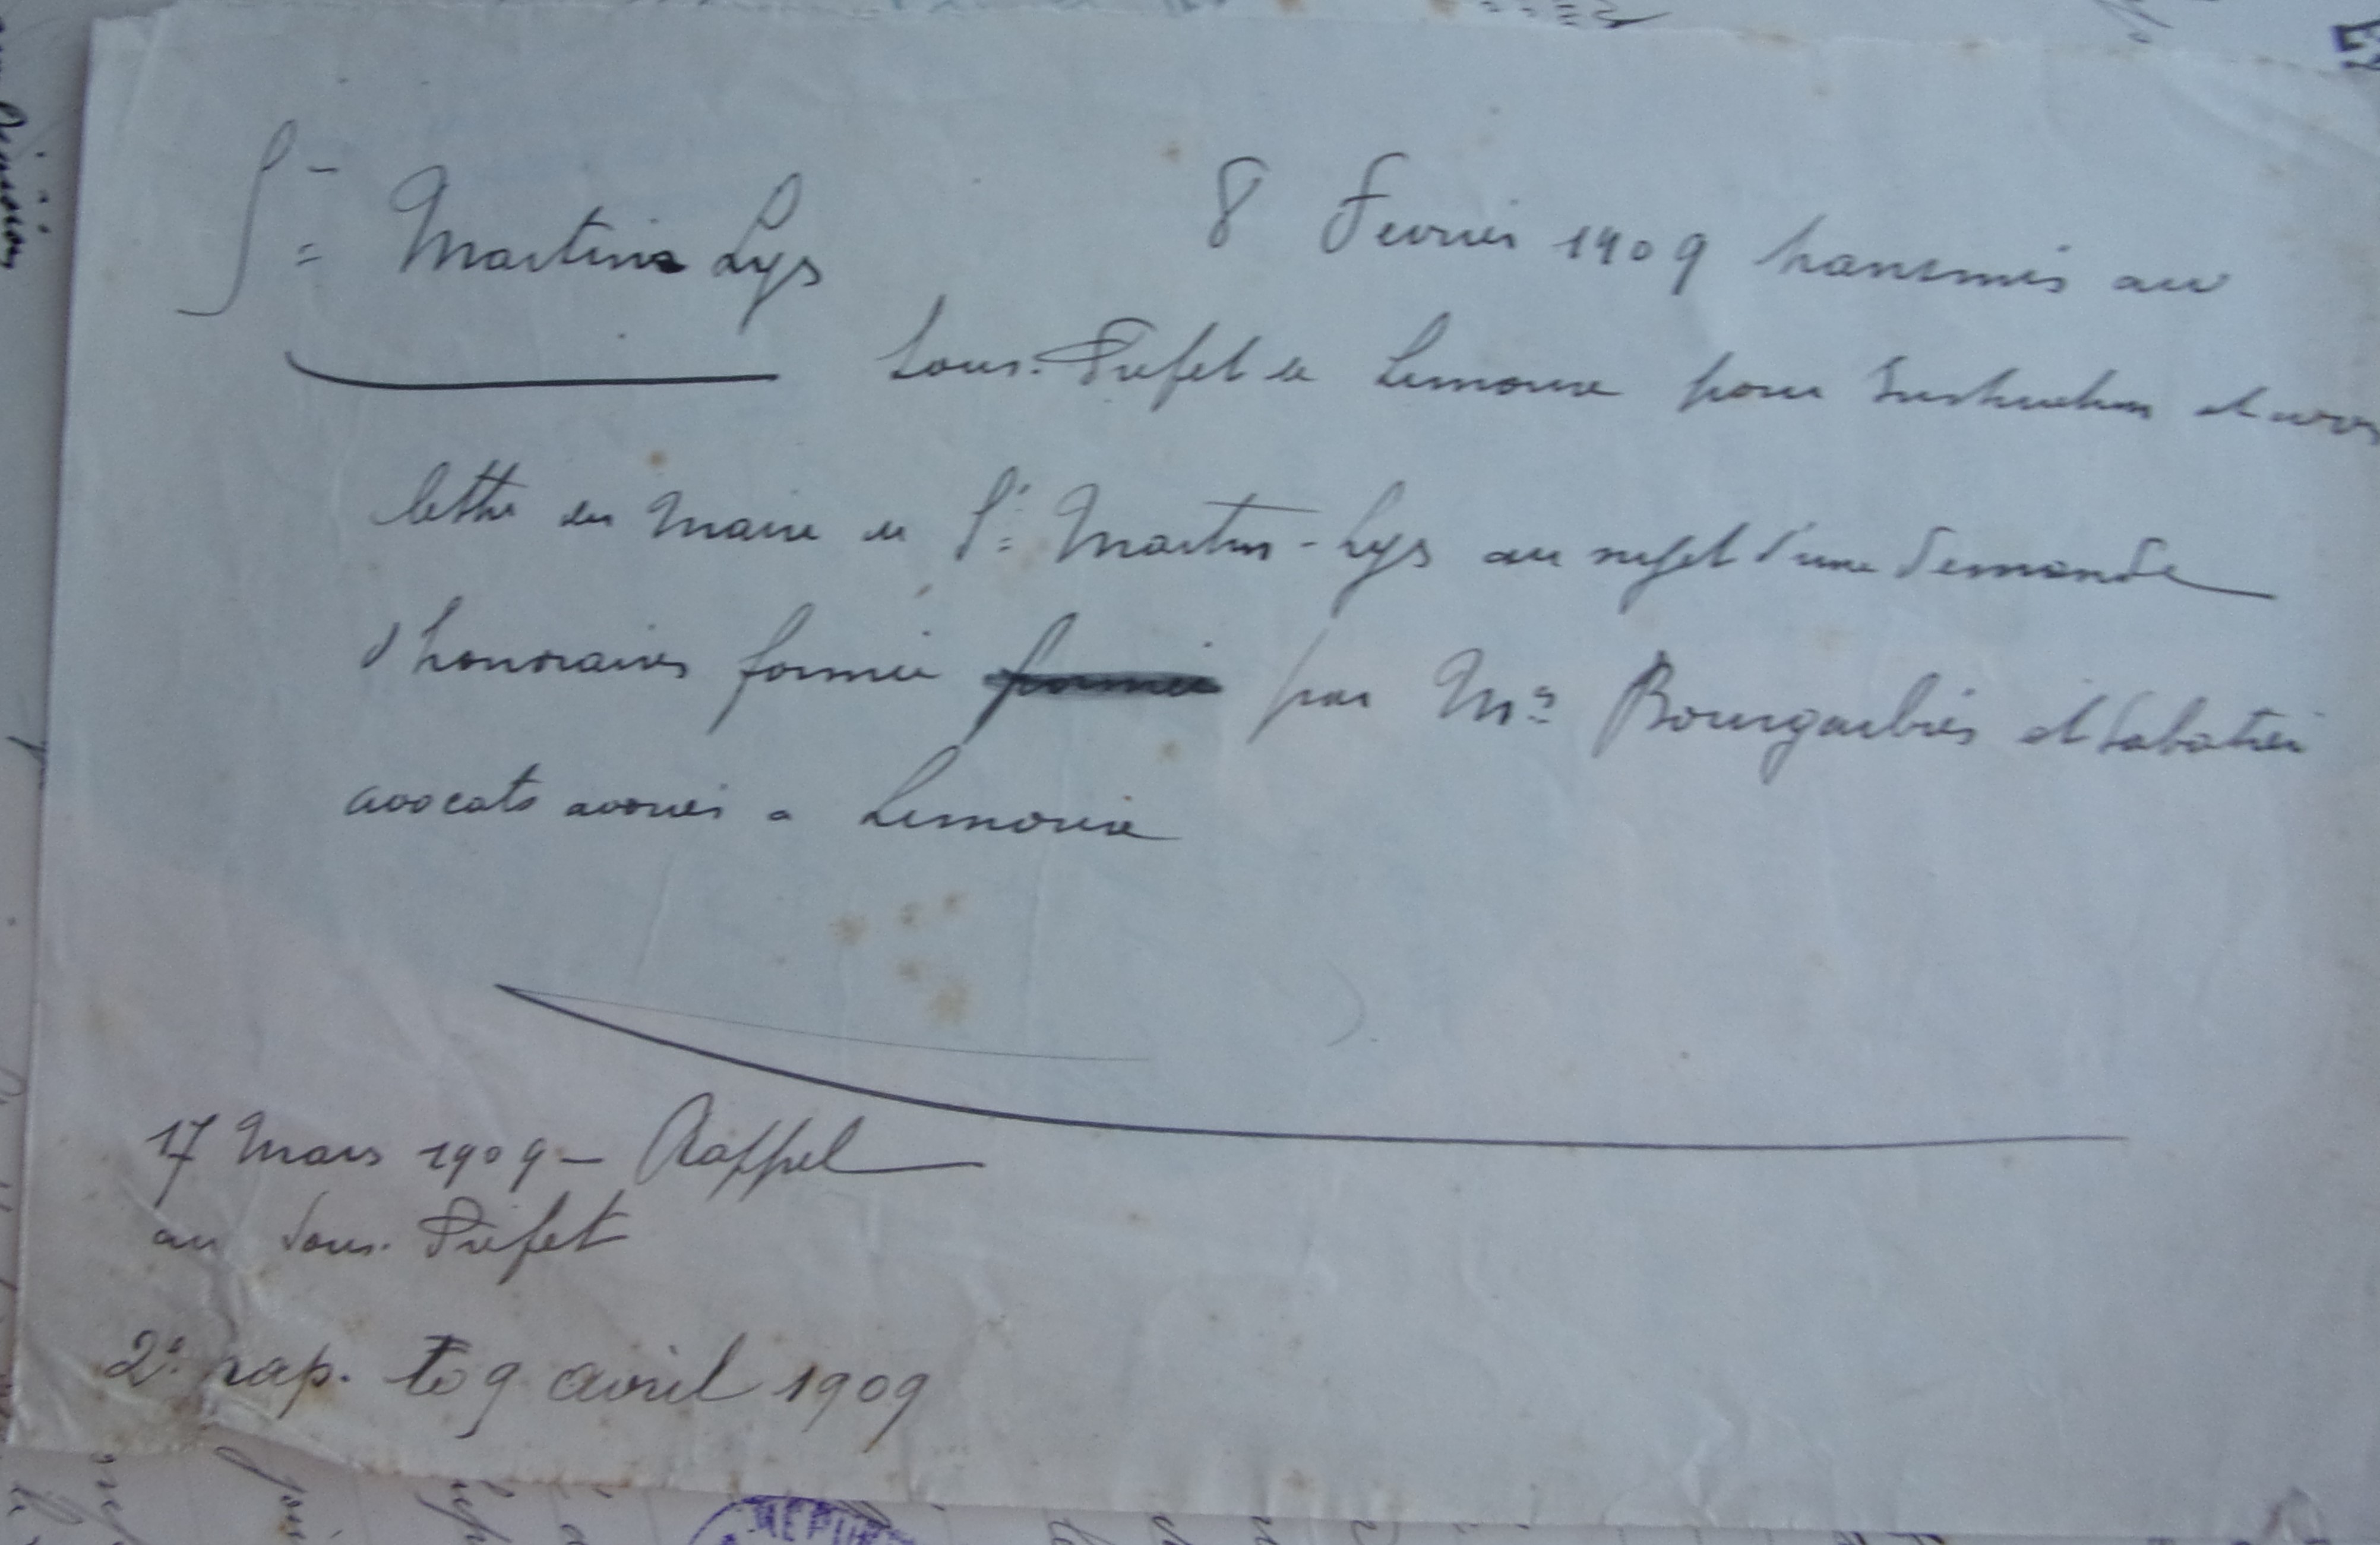 St Martin Lys
8 Fevrier 1909 transmis au
Sous-Préfet de Limoux pour Instruction et avis
lettre du Maire de St Martin-Lys au sujet d'une demande
d'honoraires formée formée par Mes et Sabatier
avocats avoués a Limoux
17 Mars 1909 - Rappel
au Sous-Préfet
2e rap. le 9 avril 1909